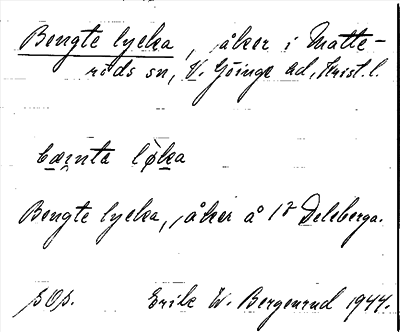 Bengte lycka, åker i Matte-
röds sn, V. Göinge hd, Krist. l.
bæ̂nta lø̀ka
Bengte lycka, åker å 12 Deleberga.
sOs. Erik W. Bergenrud 1944.